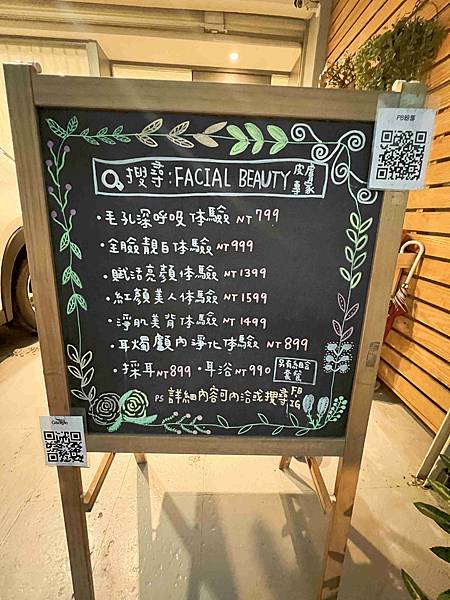 FB粉專
搜尋:FACIAL BEAUTY 皮膚專家
・毛孔深呼吸體驗 NT 799
・全臉靚白體驗 NT 999
・賦活亮顏體驗 NT 1399
・紅顏美人體驗 NT 1599
・淨肌美背體驗 NT 1499
・耳燭顱內淨化體驗 NT 899
・採耳 NT 899 ・耳浴 NT 990 另有組合套餐
PS 詳細內容可內洽或搜尋 FB IG
Google